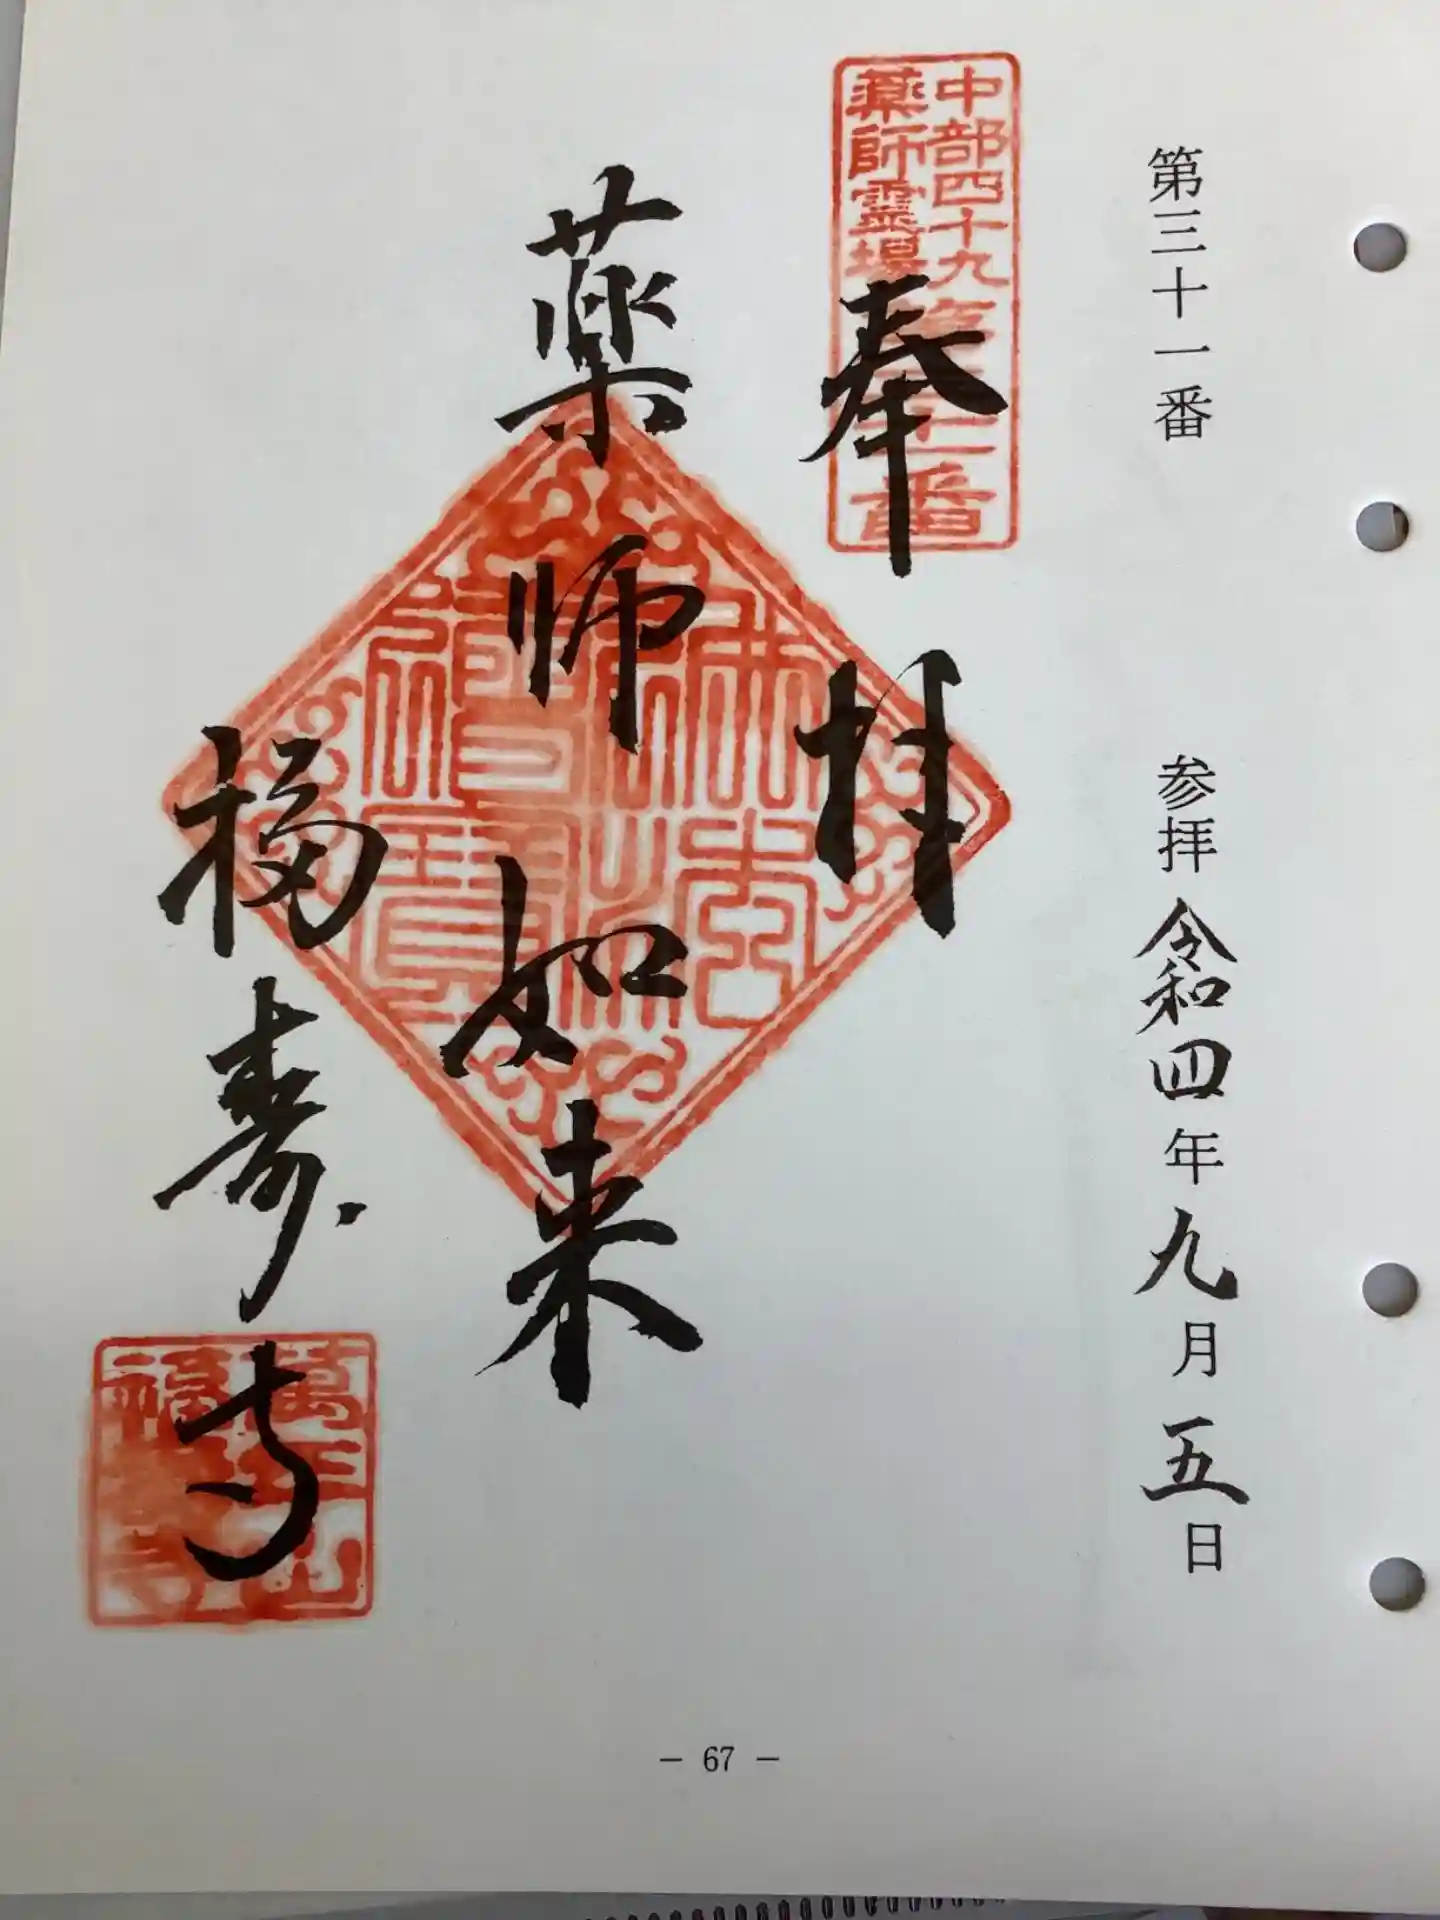 第三十一番 参拝 令和四年九月五日
中部四十九
薬師霊場
第三十一番
奉拝
薬師如来
佛法僧寶
福寿寺
萬年山
福寿寺
— 67 —